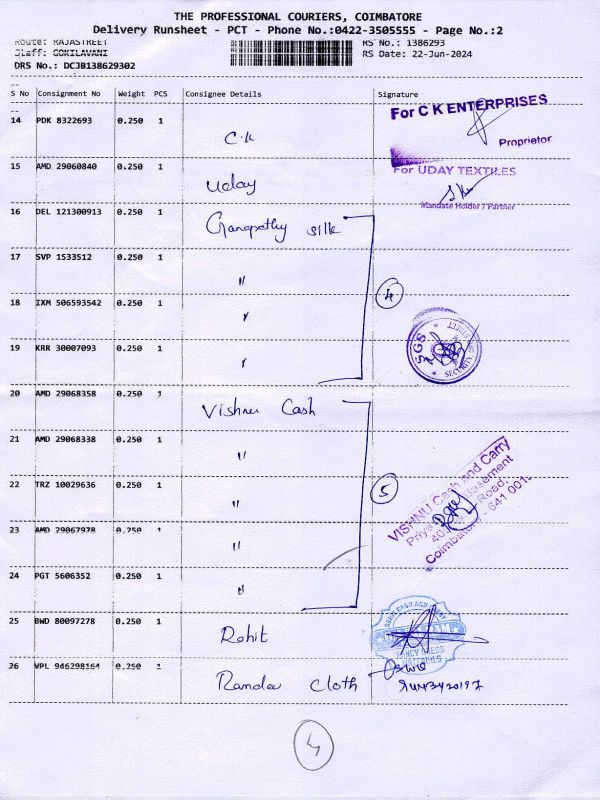 THE PROFESSIONAL COURIERS, COIMBATORE
Delivery Runsheet - PCT - Phone No.:0422-3505555 - Page No.:2
Route: RAJASTREET
Staff: GOKILAVANI
DRS No.: DCJB138629302
RS No.: 1386293
RS Date: 22-Jun-2024
S No Consignment No Weight PCS Consignee Details Signature
14 PDK 8322693 0.250 1 C.K For C K ENTERPRISES
Proprietor
15 AMD 29060840 0.250 1 Uday For UDAY TEXTILES
Mandate Holder / Partner
16 DEL 121300913 0.250 1 Ganapathy silk
17 SVP 1533512 0.250 1 "
4
18 IXM 506593542 0.250 1 "
19 KRR 30007093 0.250 1 "
SGS
SECURITY
20 AMD 29068358 0.250 1 Vishnu Cash
21 AMD 29068338 0.250 1 "
22 TRZ 10029636 0.250 1 "
5
VISHNU Cash and Carry
Basement
Road,
Coimbatore 641 001.
23 AMD 29067978 0.250 1 "
24 PGT 5606352 0.250 1 "
25 BWD 80097278 0.250 1 Rohit
26 VPL 946298164 0.250 1 Randa Cloth
4